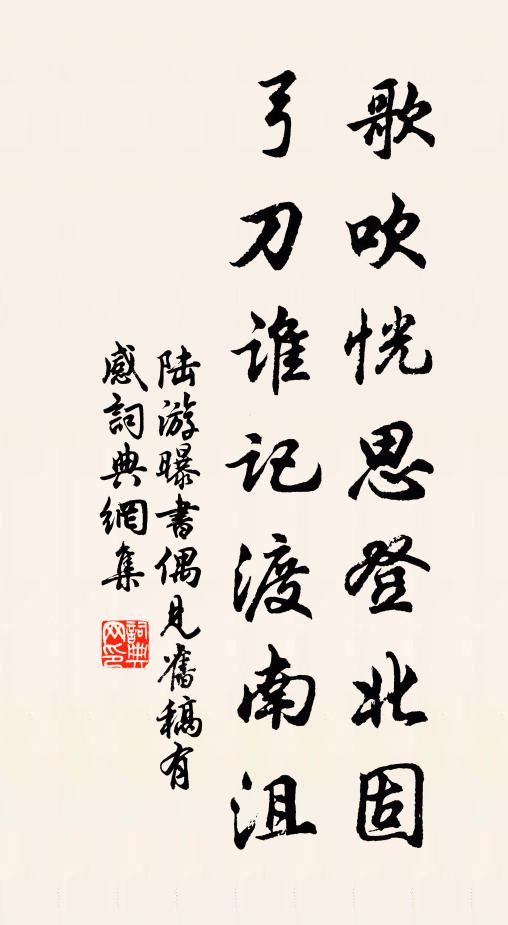 歌吹恍思登北固
弓刀誰記渡南沮
陆游曝書偶見舊稿有
感詞典網集
詞典
网印